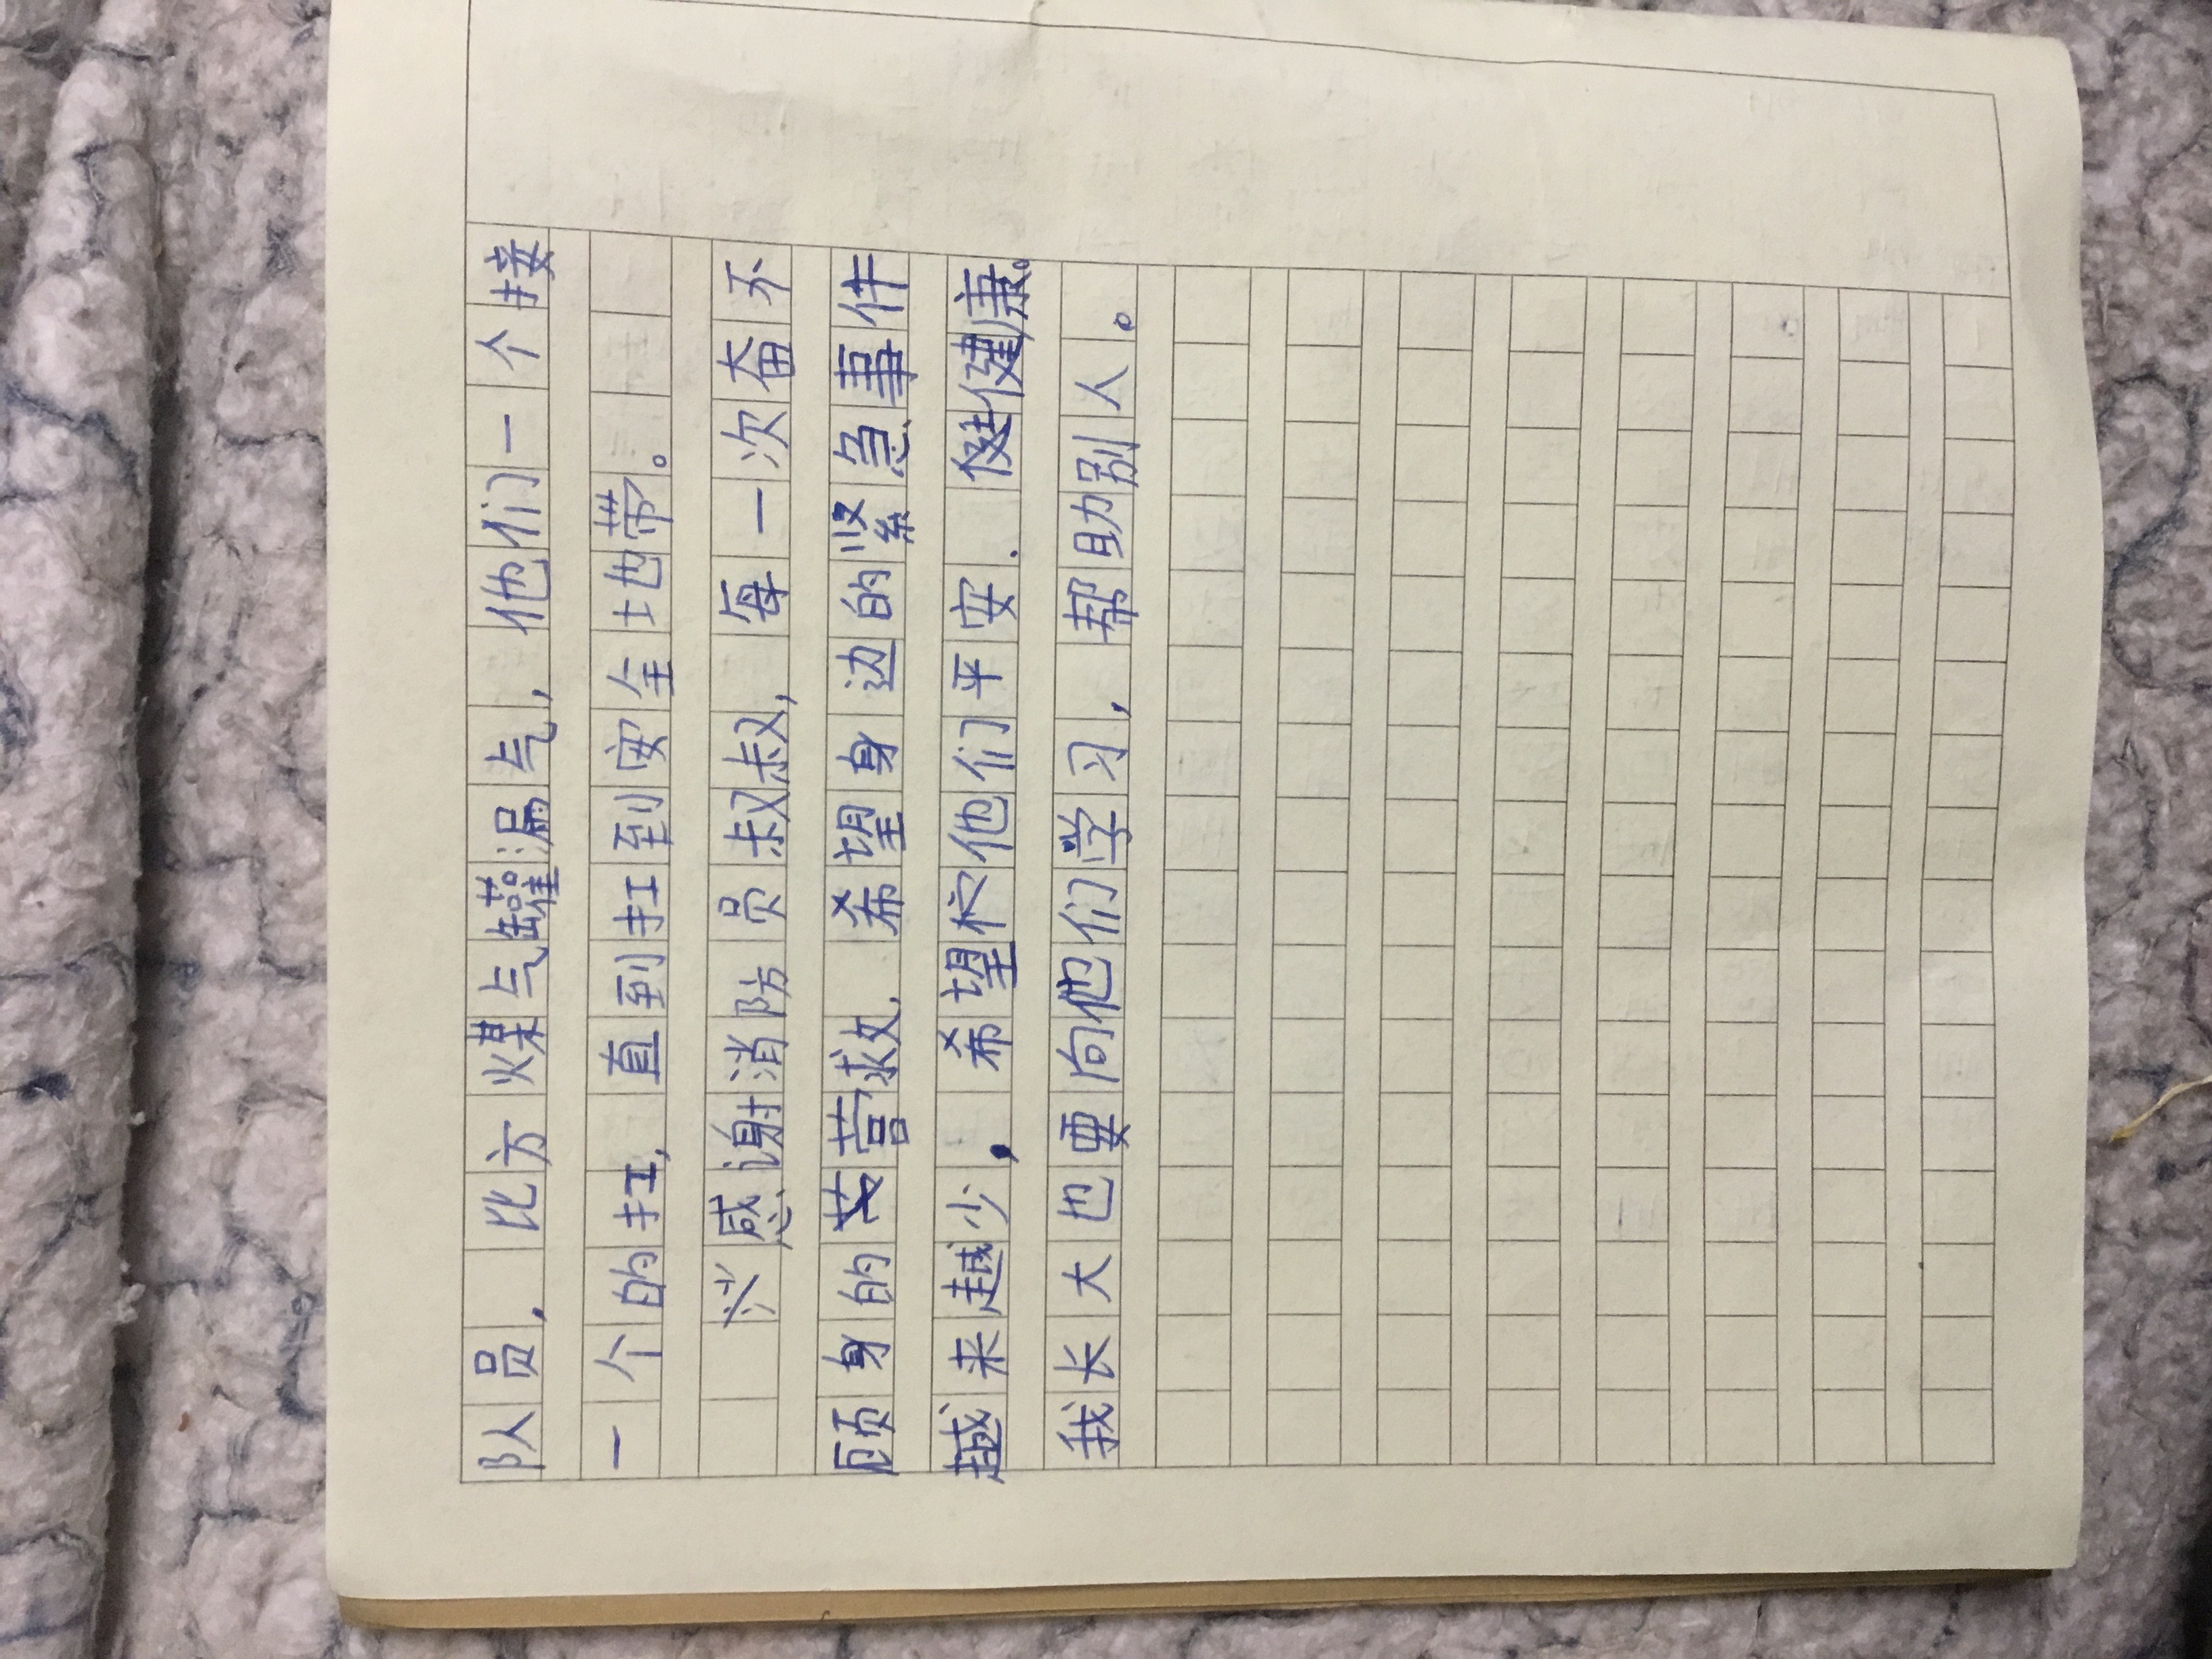 队员，比方煤气罐漏气，他们一个接
一个的扛，直到扛到安全地带。
感谢消防员叔叔，每一次奋不
顾身的营救，希望身边的紧急事件
越来越少，希望他们平安．健康。
我长大也要向他们学习，帮助别人。